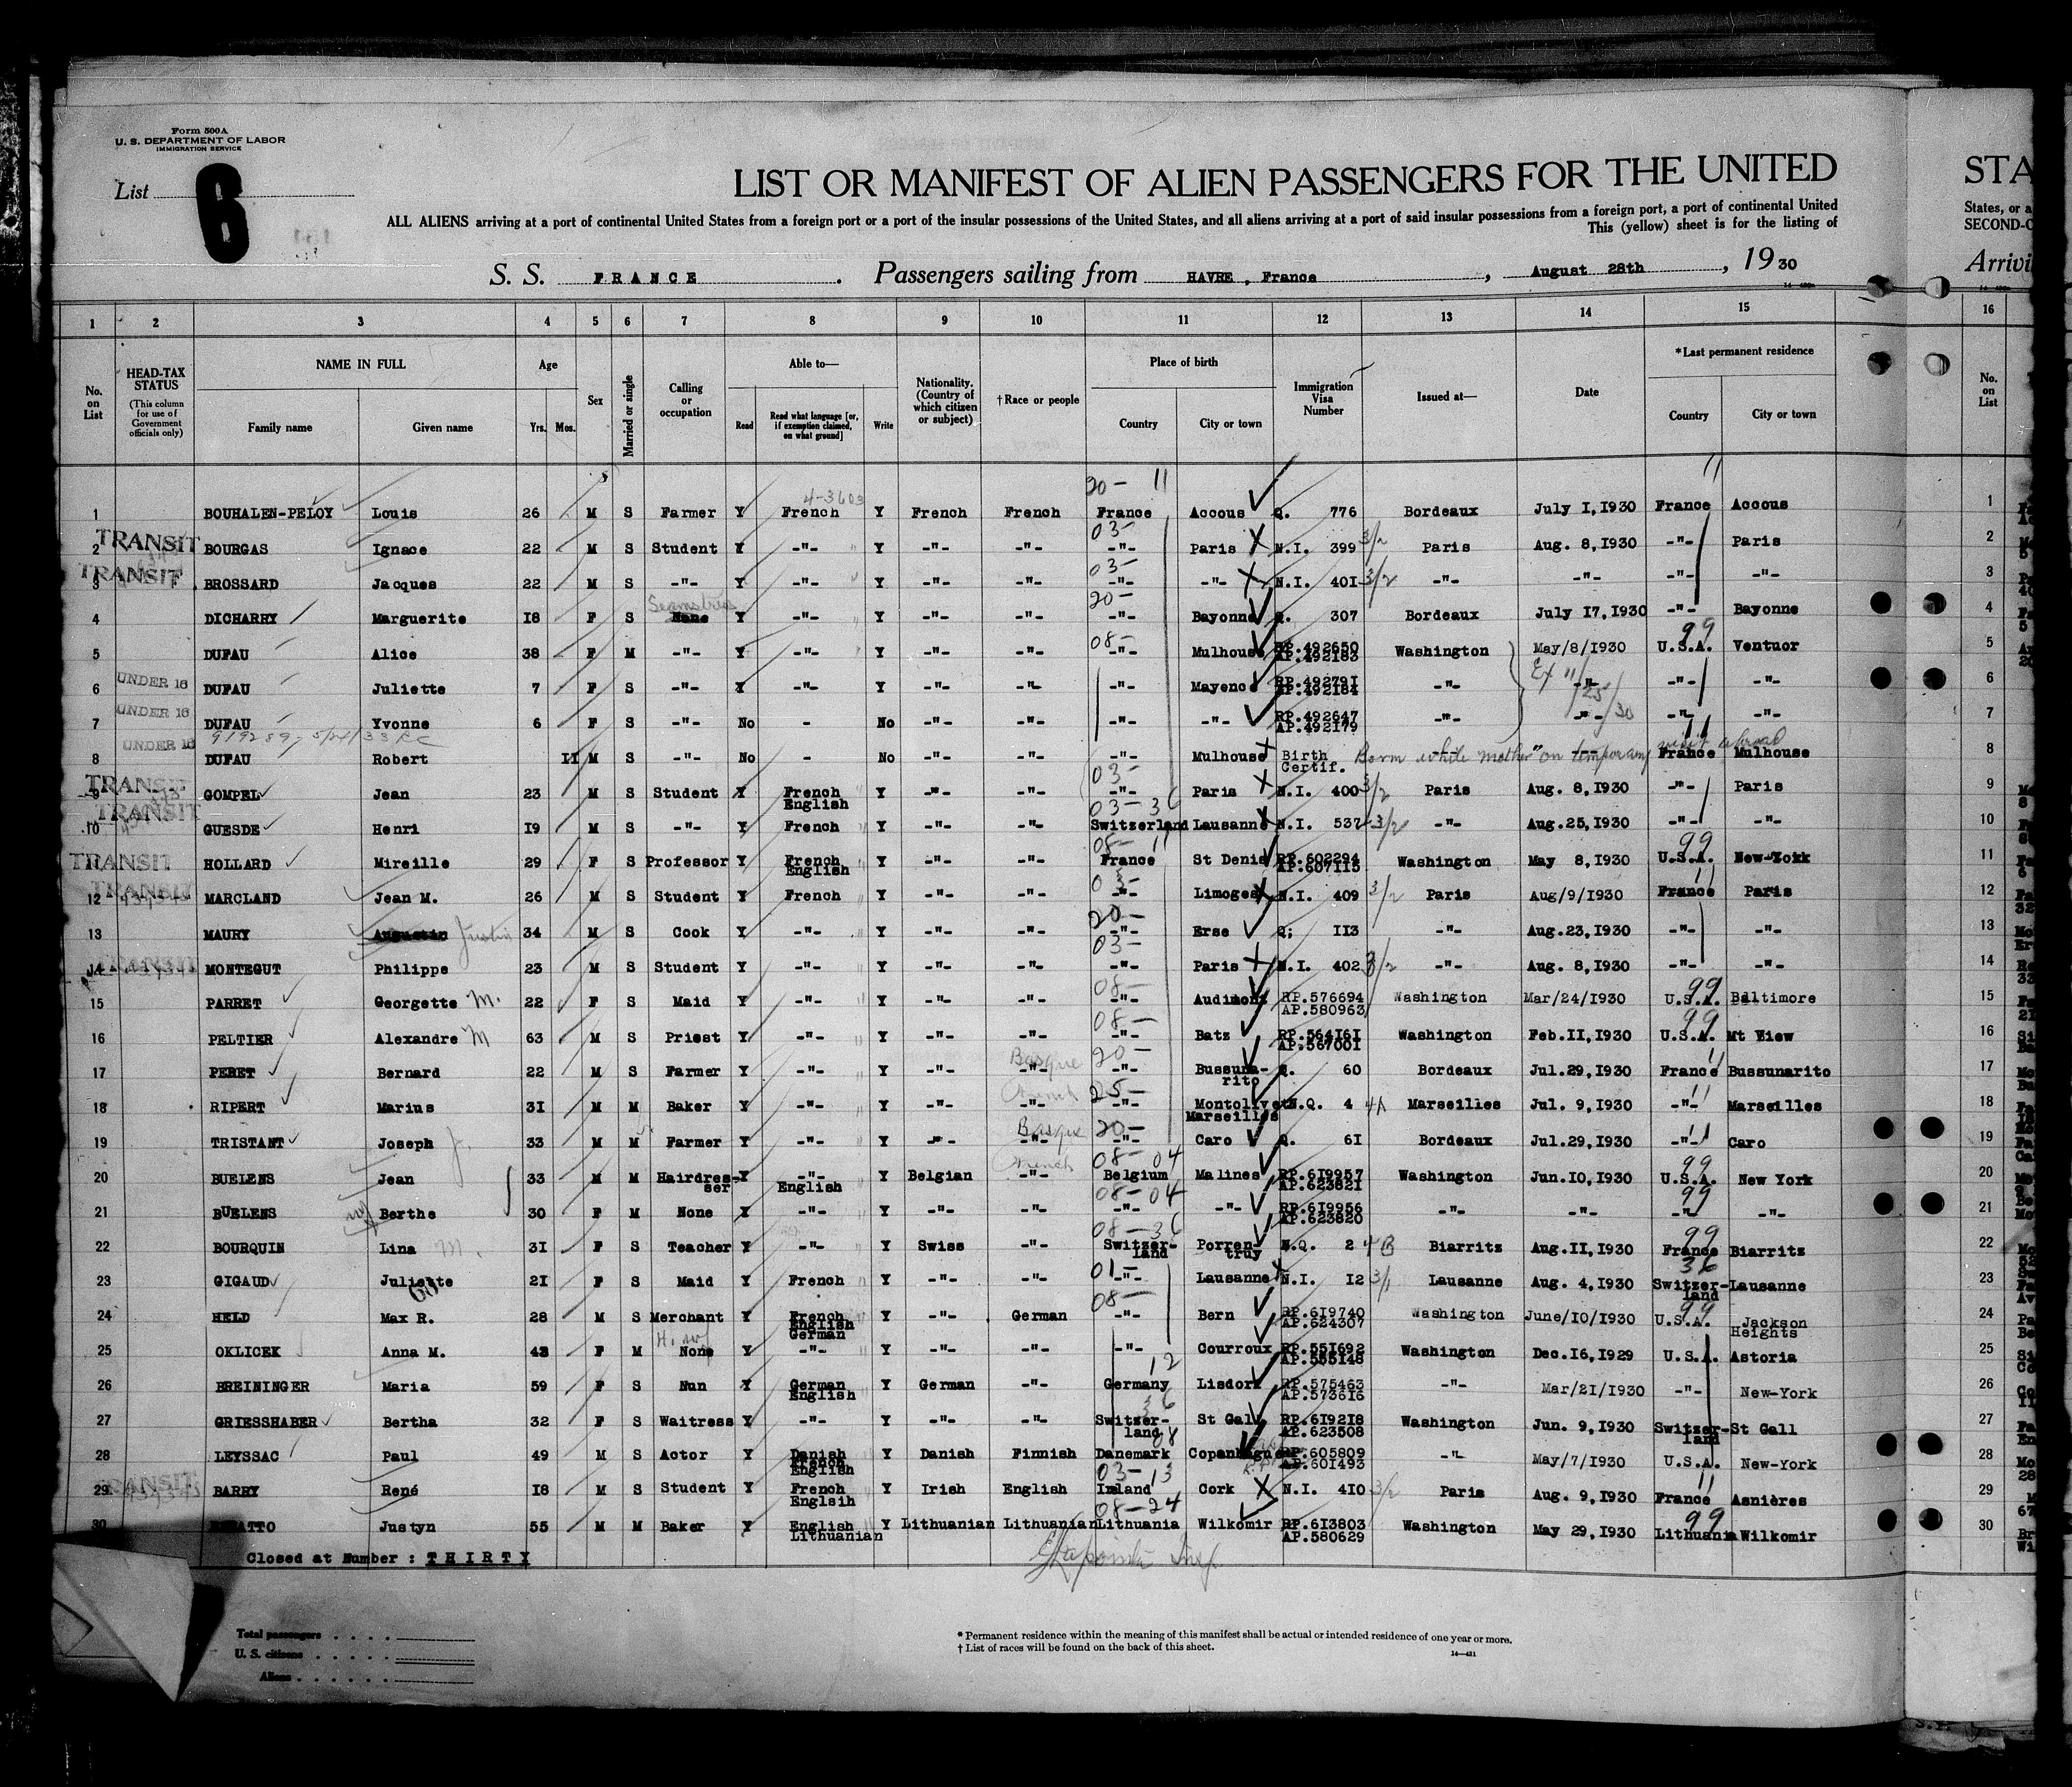 Form 500A
U. S. DEPARTMENT OF LABOR
IMMIGRATION SERVICE
List 6
LIST OR MANIFEST OF ALIEN PASSENGERS FOR THE UNITED
STA
ALL ALIENS arriving at a port of continental United States from a foreign port or a port of the insular possessions of the United States, and all aliens arriving at a port of said insular possessions from a foreign port, a port of continental United
States, or a
This (yellow) sheet is for the listing of
SECOND-C
S. S. FRANCE. Passengers sailing from HAVRE, France, August 28th, 1930
Arrivi
1 2 3 4 5 6 7 8 9 10 11 12 13 14 15 16
No. on List
HEAD-TAX STATUS (This column for use of Government officials only)
NAME IN FULL
Family name Given name
Age
Yrs. Mos.
Sex
Married or single
Calling or occupation
Able to—
Read Read what language [or, if exemption claimed, on what ground] Write
Nationality. (Country of which citizen or subject)
†Race or people
Place of birth
Country City or town
Immigration Visa Number
Issued at—
Date
*Last permanent residence
Country City or town
No. on List
20- 11 11
4-3603
1 BOUHALEN-PELOY Louis 26 M S Farmer Y French Y French French France Accous Q. 776 Bordeaux July I,I930 France Accous 1
03-
2 TRANSIT BOURGAS Ignace 22 M S Student Y -"- Y -"- -"- -"- Paris N.I. 399 3/2 Paris Aug. 8,I930 -"- Paris 2
03-
3 TRANSIT BROSSARD Jacques 22 M S -"- Y -"- Y -"- -"- -"- -"- N.I. 40I 3/2 -"- -"- -"- -"- 3
Seamstress 20-
4 DICHARRY Marguerite I8 F S None Y -"- Y -"- -"- -"- Bayonne Q. 307 Bordeaux July I7,I930 -"- Bayonne 4
08- 99
5 DUFAU Alice 38 F M -"- Y -"- Y -"- -"- -"- Mulhouse RP.492650 AP.492183 Washington May/8/I930 U.S.A. Ventuor 5
Ex 11/25/30
6 UNDER 16 DUFAU Juliette 7 F S -"- Y -"- Y -"- -"- -"- Mayence RP.49279I AP.492184 -"- -"- -"- -"- 6
7 UNDER 16 DUFAU Yvonne 6 F S -"- No - No -"- -"- -"- -"- RP.492647 AP.492179 -"- -"- -"- -"- 7
8 UNDER 16 DUFAU Robert II M S -"- No - No -"- -"- -"- Mulhouse Birth Certif. Born while mother on temporary visit abroad France Mulhouse 8
03-
9 TRANSIT GOMPEL Jean 23 M S Student Y French English Y -"- -"- -"- Paris N.I. 400 3/2 Paris Aug. 8,I930 -"- Paris 9
03-36
10 TRANSIT GUESDE Henri I9 M S -"- Y French Y -"- -"- Switzerland Lausanne N.I. 537 3/2 -"- Aug.25,I930 -"- -"- 10
08- 11 99
TRANSIT HOLLARD Mireille 29 F S Professor Y French English Y -"- -"- France St Denis RP.602294 AP.607115 Washington May 8,I930 U.S.A. New-York 11
03- 11
12 TRANSIT MARCLAND Jean M. 26 M S Student Y French Y -"- -"- -"- Limoges N.I. 409 3/2 Paris Aug/9/I930 France Paris 12
20-
13 MAURY Augustin Justin 34 M S Cook Y -"- Y -"- -"- -"- Erse Q; II3 -"- Aug.23,I930 -"- -"- 13
03-
14 TRANSIT MONTEGUT Philippe 23 M S Student Y -"- Y -"- -"- -"- Paris N.I. 402 3/2 -"- Aug. 8,I930 -"- -"- 14
08- 99
15 PARRET Georgette M. 22 F S Maid Y -"- Y -"- -"- -"- Audincourt RP.576694 AP.580963 Washington Mar/24/I930 U.S.A. Baltimore 15
08- 99
16 PELTIER Alexandre M 63 M S Priest Y -"- Y -"- -"- -"- Batz RP.564I6I AP.56700I Washington Feb.II,I930 U.S.A. Mt View 16
Basque 20- 11
17 PERET Bernard 22 M S Farmer Y -"- Y -"- -"- -"- Bussunarito Q. 60 Bordeaux Jul.29,I930 France Bussunarito 17
French 25- 11
18 RIPERT Marius 3I M M Baker Y -"- Y -"- -"- -"- Montolivet Marseilles N.Q. 4 4A Marseilles Jul. 9,I930 -"- Marseilles 18
Basque 20- 11
19 TRISTANT Joseph J. 33 M M Farmer Y -"- Y -"- -"- -"- Caro Q. 6I Bordeaux Jul.29,I930 -"- Caro 19
French 08-04 99
20 BUELENS Jean 33 M M Hairdresser Y -"- English Y Belgian -"- Belgium Malines RP.6I9957 AP.62382I Washington Jun.I0,I930 U.S.A. New York 20
08-04 99
21 BUELENS wf Berthe 30 F M None Y -"- Y -"- -"- -"- -"- RP.6I9956 AP.623820 -"- -"- -"- -"- 21
08-36 99
22 BOURQUIN Lina M. 3I F S Teacher Y -"- Y Swiss -"- Switzerland Porrentruy N.Q. 2 4B Biarritz Aug.II,I930 France Biarritz 22
01- 36
23 GIGAUD Juliette 2I F S Maid Y French Y -"- -"- -"- Lausanne N.I. I2 3/1 Lausanne Aug. 4,I930 Switzerland Lausanne 23
08- 99
24 HELD Max R. 28 M S Merchant Y French English German Y -"- German -"- Bern RP.6I9740 AP.624307 Washington June/I0/I930 U.S.A. Jackson Heights 24
H. wf
25 OKLICEK Anna M. 43 F M None Y -"- Y -"- -"- -"- Courroux RP.55I692 AP.555148 Washington Dec.I6,I929 U.S.A. Astoria 25
12
26 BREININGER Maria 59 F S Nun Y German English Y German -"- Germany Lisdork RP.575463 AP.573616 -"- Mar/2I/I930 -"- New-York 26
36
27 GRIESSHABER Bertha 32 F S Waitress Y -"- Y -"- -"- Switzerland St Gall RP.6I92I8 AP.623508 Washington Jun. 9,I930 Switzerland St Gall 27
08
28 LEYSSAC Paul 49 M S Actor Y Danish French English Y Danish Finnish Danemark Copenhague RP.605809 AP.60I493 -"- May/7/I930 U.S.A. New-York 28
03-13 11
29 TRANSIT BARRY René I8 M S Student Y French Englsih Y Irish English Ireland Cork N.I. 4I0 3/2 Paris Aug. 9,I930 France Asnières 29
08-24 99
30 Justyn 55 M M Baker Y English Lithuanian Y Lithuanian Lithuanian Lithuania Wilkomir RP.6I3803 AP.580629 Washington May 29,I930 Lithuania Wilkomir 30
Closed at Number : THIRTY
Total passengers
U. S. citizens
Aliens
* Permanent residence within the meaning of this manifest shall be actual or intended residence of one year or more.
† List of races will be found on the back of this sheet.